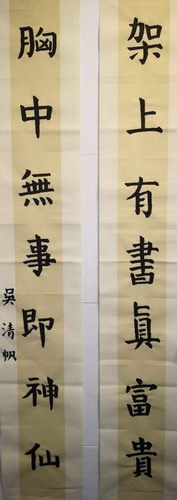 架上有書真富貴
胸中無事即神仙
吳清帆